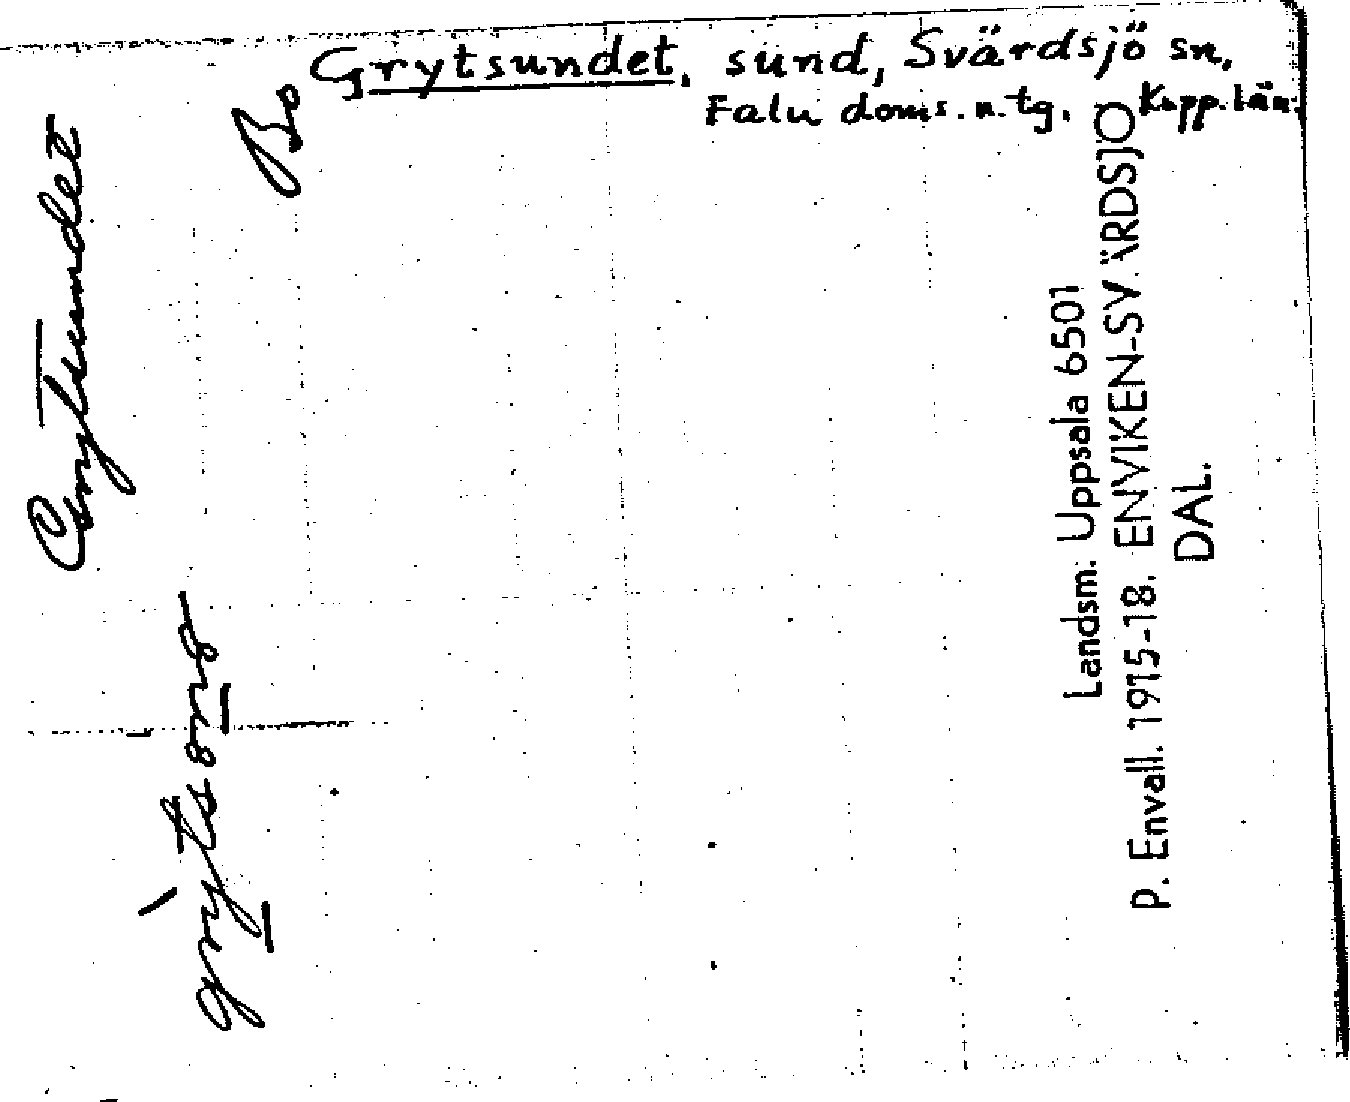 Grytsundet, sund, Svärdsjö sn,
Falu doms. n. tg. Kopp. län.
Grytsundet
Landsm. Uppsala 6501
P. Envall. 1915-18. ENVIKEN-SVÄRDSJÖ
DAL.